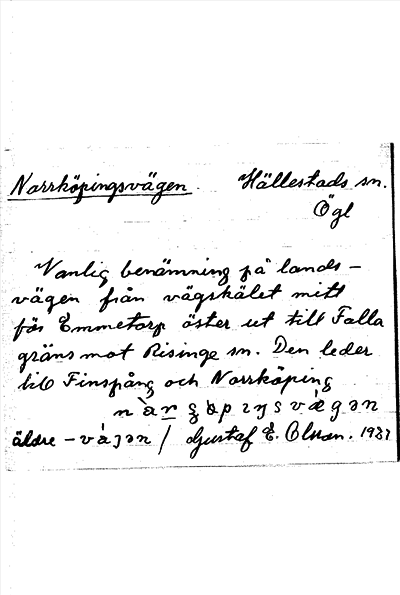 Norrköpingsvägen. Hällestads sn.
Ögl
Vanlig benämning på lands-
vägen från vägskälet mitt
för Emmetorp öster ut till Falla
gräns mot Risinge sn. Den leder
till Finspång och Norrköping
äldre - / Gustaf E. Olsson.